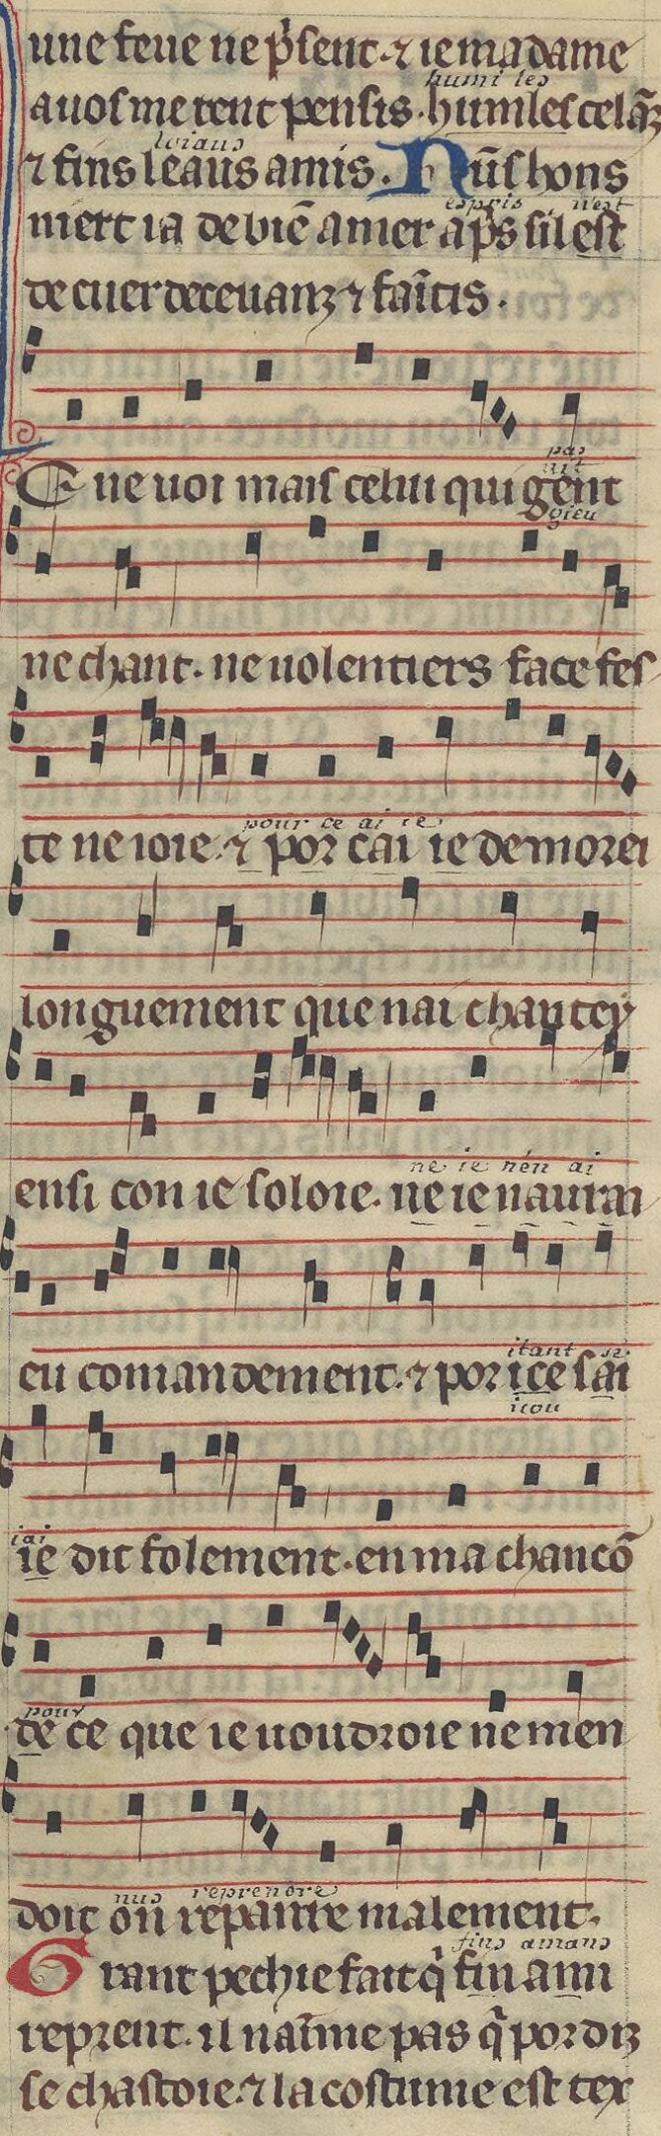 une feue ne p̃sent. ⁊ ie ma dame
humi les
auos me rent pensis. humles cel q̃z
loiaus
⁊ fins leaus amis. Nũs hons
espris nest
niert ia de biẽ amer ap̃s sil est
de cuer deceuanz ⁊ faĩtis.
pas
uit
E ne uoi mais celui qui gent
gieu
ne chant. ne uolentiers face fes
pour ce ai ie
te ne ioie. ⁊ por cai ie demorei
longuement que nai chantey
ne ie nen ai
ensi con ie soloie. ne ie naurai
itant si
eu comandement. ⁊ por ice sai
icou
iai
ie dit folement. en ma chancõ
pour
de ce que ie uoudroie ne men
nus reprenore
doit on repanre malement.
fins amans
Grant pechie fait q̃ fin ami
reprent. il naĩme pas q̃ por diz
se chastoie. ⁊ la costume est tex